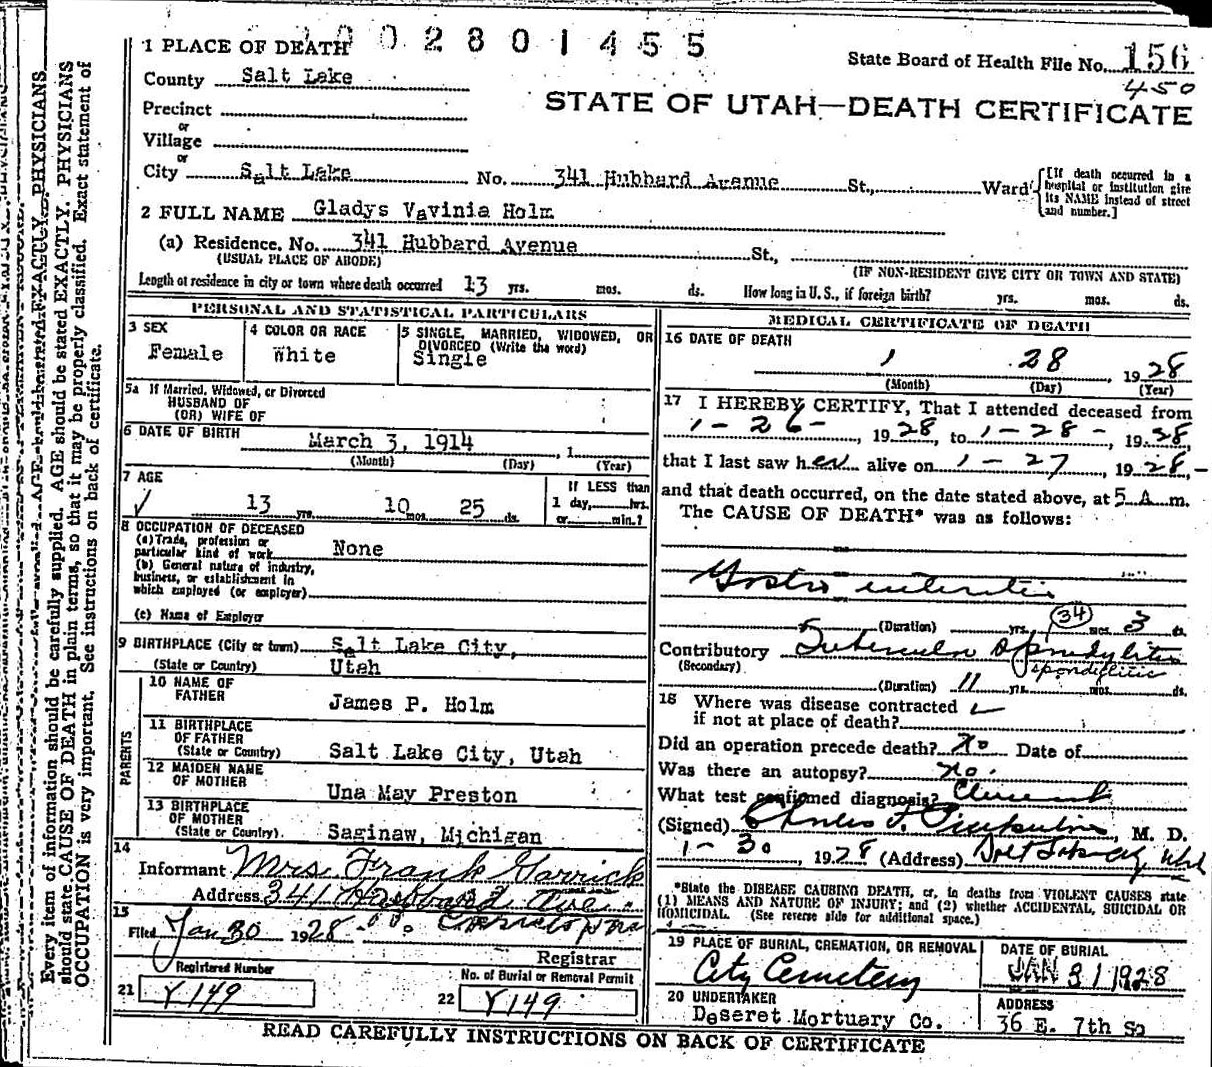 002801455
1 PLACE OF DEATH
State Board of Health File No. 156
450
County Salt Lake
STATE OF UTAH—DEATH CERTIFICATE
Precinct
or
Village
or
City Salt Lake No. 341 Hubbard Avenue St., Ward
[If death occurred in a hospital or institution give its NAME instead of street and number.]
2 FULL NAME Gladys Vavinia Holm
(a) Residence. No. 341 Hubbard Avenue St.,
(USUAL PLACE OF ABODE) (IF NON-RESIDENT GIVE CITY OR TOWN AND STATE)
Length of residence in city or town where death occurred 13 yrs. mos. ds. How long in U. S., if foreign birth? yrs. mos. ds.
PERSONAL AND STATISTICAL PARTICULARS
3 SEX
Female
4 COLOR OR RACE
White
5 SINGLE, MARRIED, WIDOWED, OR
DIVORCED (Write the word)
Single
5a If Married, Widowed, or Divorced
HUSBAND OF
(OR) WIFE OF
6 DATE OF BIRTH
March 3, 1914 , 1
(Month) (Day) (Year)
7 AGE
13 yrs. 10 mos. 25 ds.
If LESS than
1 day, hrs.
or min.?
8 OCCUPATION OF DECEASED
(a) Trade, profession or
particular kind of work None
(b) General nature of industry,
business, or establishment in
which employed (or employer)
(c) Name of Employer
9 BIRTHPLACE (City or town) Salt Lake City,
(State or Country) Utah
PARENTS
10 NAME OF
FATHER James P. Holm
11 BIRTHPLACE
OF FATHER
(State or Country) Salt Lake City, Utah
12 MAIDEN NAME
OF MOTHER Una May Preston
13 BIRTHPLACE
OF MOTHER
(State or Country). Saginaw, Michigan
14
Informant Mrs. Frank Garrick
Address 341 Hubbard Ave.
15
Filed Jan 30 1928
Registrar
Registered Number
21 Y149
No. of Burial or Removal Permit
22 Y149
MEDICAL CERTIFICATE OF DEATH
16 DATE OF DEATH
1 28 , 1928
(Month) (Day) (Year)
17 I HEREBY CERTIFY, That I attended deceased from
1-26- , 1928, to 1-28- , 1928,
that I last saw her alive on 1-27 , 1928-
and that death occurred, on the date stated above, at 5 A m.
The CAUSE OF DEATH* was as follows:
Gastro enteritis
(Duration) yrs. (34) mos. 3 ds.
Contributory Tubercular Spondylitis
(Secondary) spondylitis
(Duration) 11 yrs. mos. ds.
18 Where was disease contracted
if not at place of death?
Did an operation precede death? No Date of
Was there an autopsy? no.
What test confirmed diagnosis? Clinical
(Signed) Charles F. , M. D.
1-30 , 1928 (Address) Salt Lake City Utah
*State the DISEASE CAUSING DEATH, or, in deaths from VIOLENT CAUSES state
(1) MEANS AND NATURE OF INJURY; and (2) whether ACCIDENTAL, SUICIDAL OR
HOMICIDAL. (See reverse side for additional space.)
19 PLACE OF BURIAL, CREMATION, OR REMOVAL
City Cemetery
DATE OF BURIAL
JAN 31 1928
20 UNDERTAKER
Deseret Mortuary Co.
ADDRESS
36 E. 7th So
READ CAREFULLY INSTRUCTIONS ON BACK OF CERTIFICATE
Every item of information should be carefully supplied. AGE should be stated EXACTLY. PHYSICIANS
should state CAUSE OF DEATH in plain terms, so that it may be properly classified. Exact statement of
OCCUPATION is very important. See instructions on back of certificate.